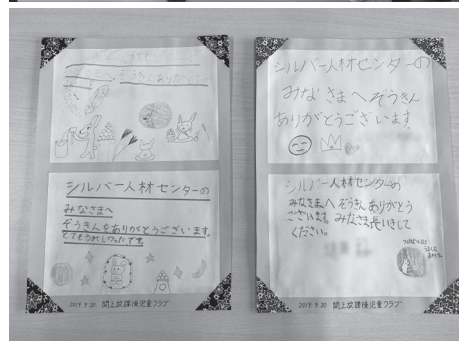 シルバー人材センターの
みなさまへ ぞうきんありがとう
シルバー人材センターの
みなさまへ
ぞうきんをありがとうございます。
とてもうれしかったです
2019.9.20 閖上放課後児童クラブ
シルバー人材センターの
みなさまへぞうきん
ありがとうございます
シルバー人材センターの
みなさまへ ぞうきん ありがとう
ございます。みなさま長いきして
ください。
2019.9.20 閖上放課後児童クラブ